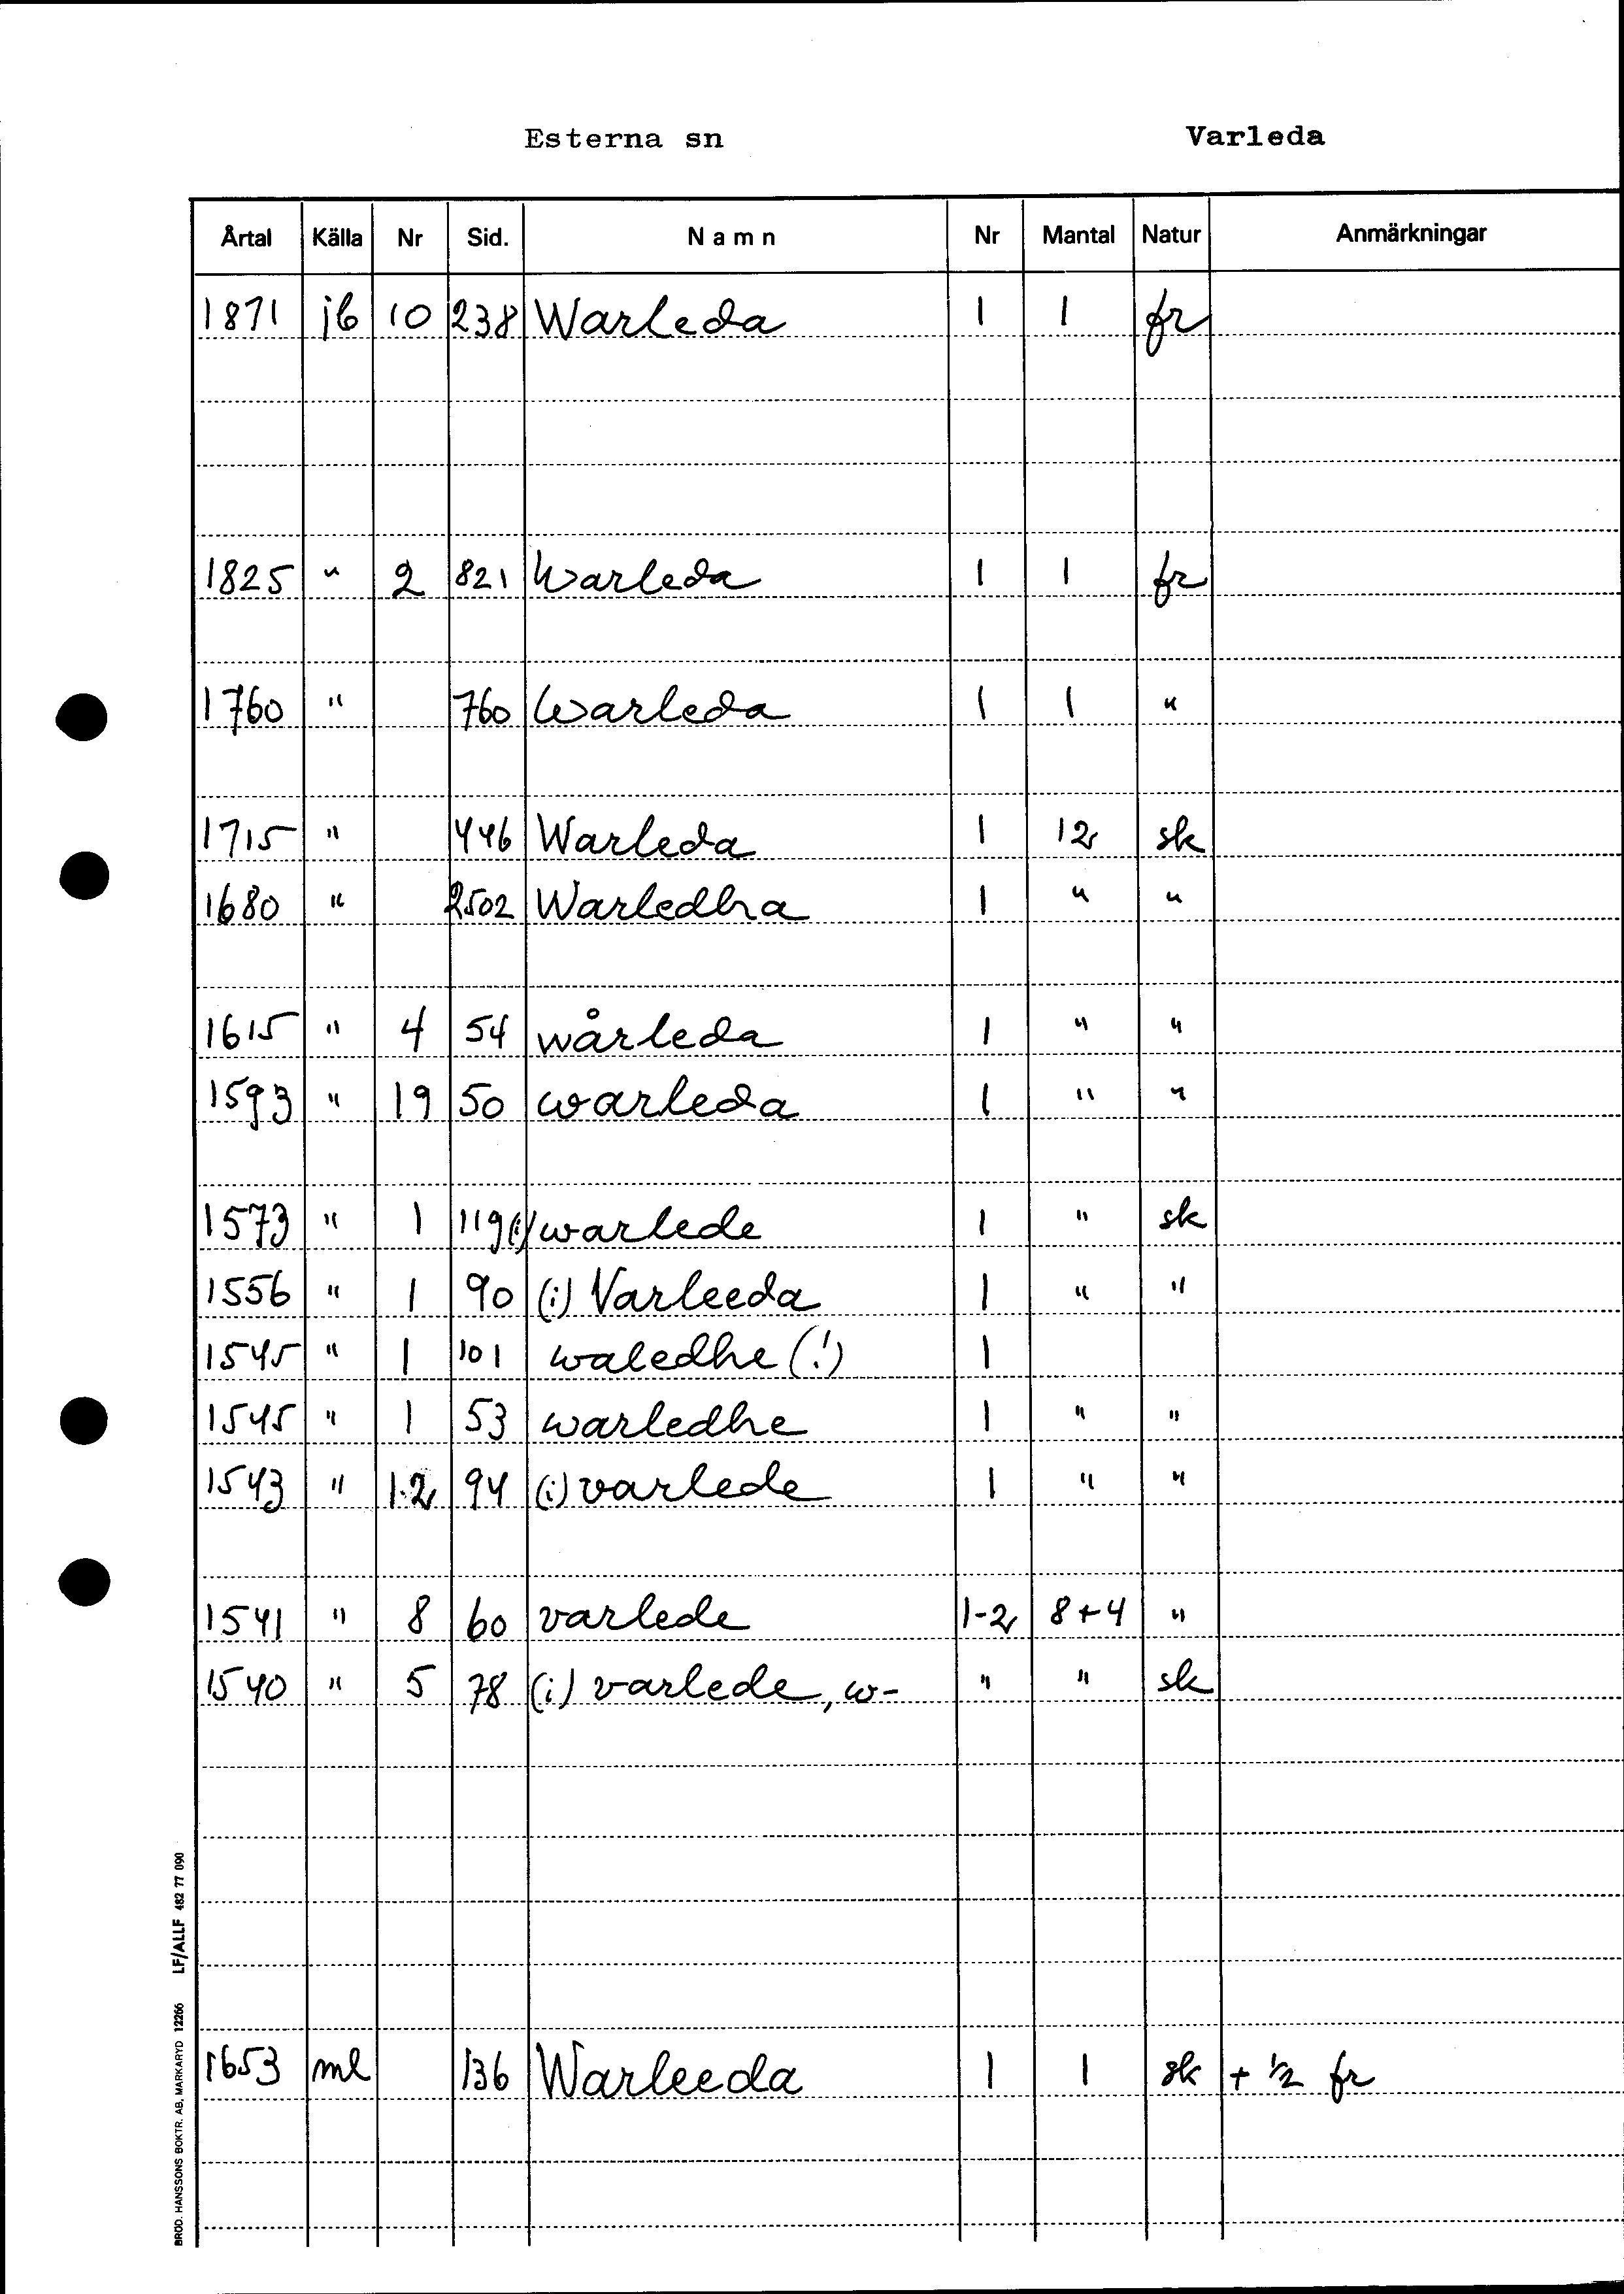 Esterna sn Varleda
Årtal Källa Nr Sid. Namn Nr Mantal Natur Anmärkningar
1871 jb 10 238 Warleda 1 1 fr
1825 " 2 821 Warleda 1 1 fr
1760 " 760 Warleda 1 1 "
1715 " 446 Warleda 1 12 sk
1680 " 2502 Warledha 1 " "
1615 " 4 54 wårleda 1 " "
1593 " 19 50 warleda 1 " "
1573 " 1 119 (i) warlede 1 " sk
1556 " 1 90 (i) Varleeda 1 " "
1545 " 1 101 waledhe (!) 1
1545 " 1 53 warledhe 1 " "
1543 " 1-2 94 (i) varlede 1 " "
1541 " 8 60 varlede 1-2 8+4 "
1540 " 5 78 (i) varlede, w- " " sk
1653 ml 136 Warleeda 1 1 sk + 1/2 fr
BROD. HANSSONS BOKTR. AB, MARKARYD 12266 LF/ALLF 482 77 090